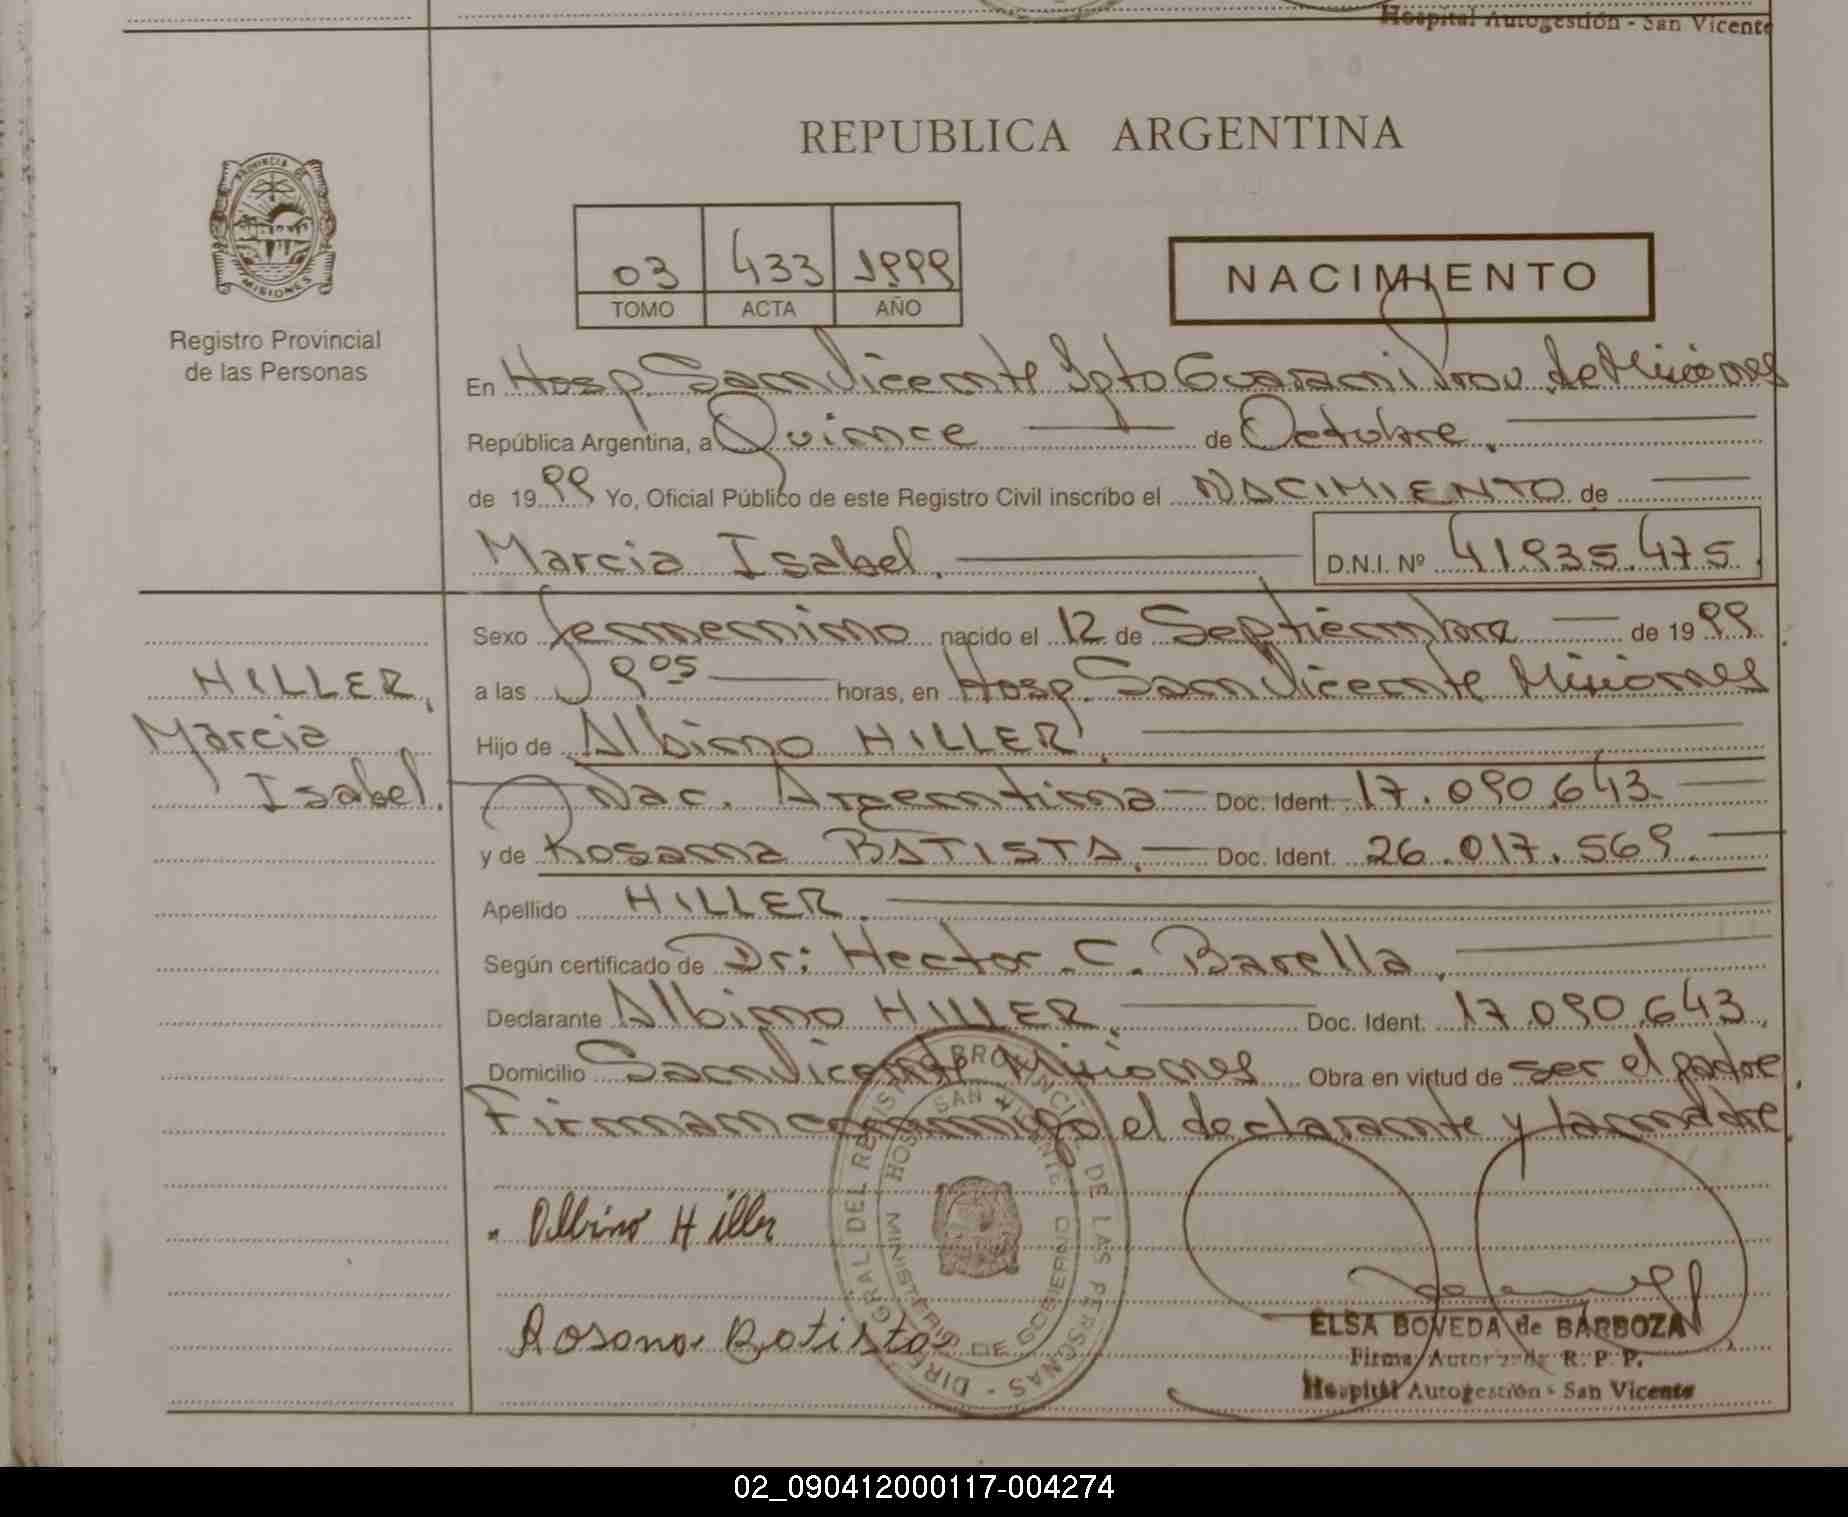 Hospital Autogestión - San Vicente
PROVINCIA DE
MISIONES
Registro Provincial
de las Personas
REPUBLICA ARGENTINA
03 433 1999
TOMO ACTA AÑO
NACIMIENTO
En Hosp. San Vicente Dpto Guarani Prov. de Misiones
República Argentina, a Quince de Octubre.
de 1999 Yo, Oficial Público de este Registro Civil inscribo el NACIMIENTO de
Marcia Isabel. D.N.I. Nº 41.935.475.
Sexo femenino nacido el 12 de Septiembre de 1999.
a las 19 05 horas, en Hosp. San Vicente Misiones
Hijo de Albino HILLER.
Nac. Argentina Doc. Ident. 17.090.643
y de Rosana BATISTA. Doc. Ident. 26.017.569.
Apellido HILLER.
Según certificado de Dr: Hector C. Barella.
Declarante Albino HILLER. Doc. Ident. 17.090.643.
Domicilio San Vicente Misiones Obra en virtud de ser el padre.
Firman conmigo el declarante y la madre.
HILLER,
Marcia
Isabel.
Albino Hiller
Rosana Batista
DIREC. GRAL DEL REGIST. PROVINCIAL DE LAS PERSONAS
HOSP. SAN VICENTE
MINISTERIO DE GOBIERNO
ELSA BOVEDA de BARBOZA
Firma Autorizada R. P. P.
Hospital Autogestión - San Vicente
02_090412000117-004274